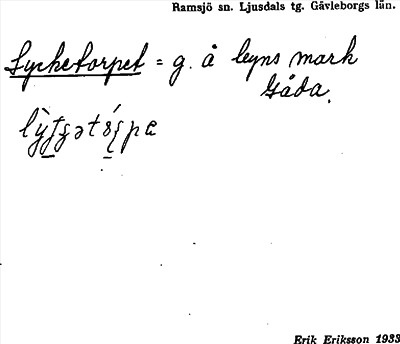 Ramsjö sn. Ljusdals tg. Gävleborgs län.
Lycketorpet = g. å byns mark
Gåda.
Erik Eriksson 1933